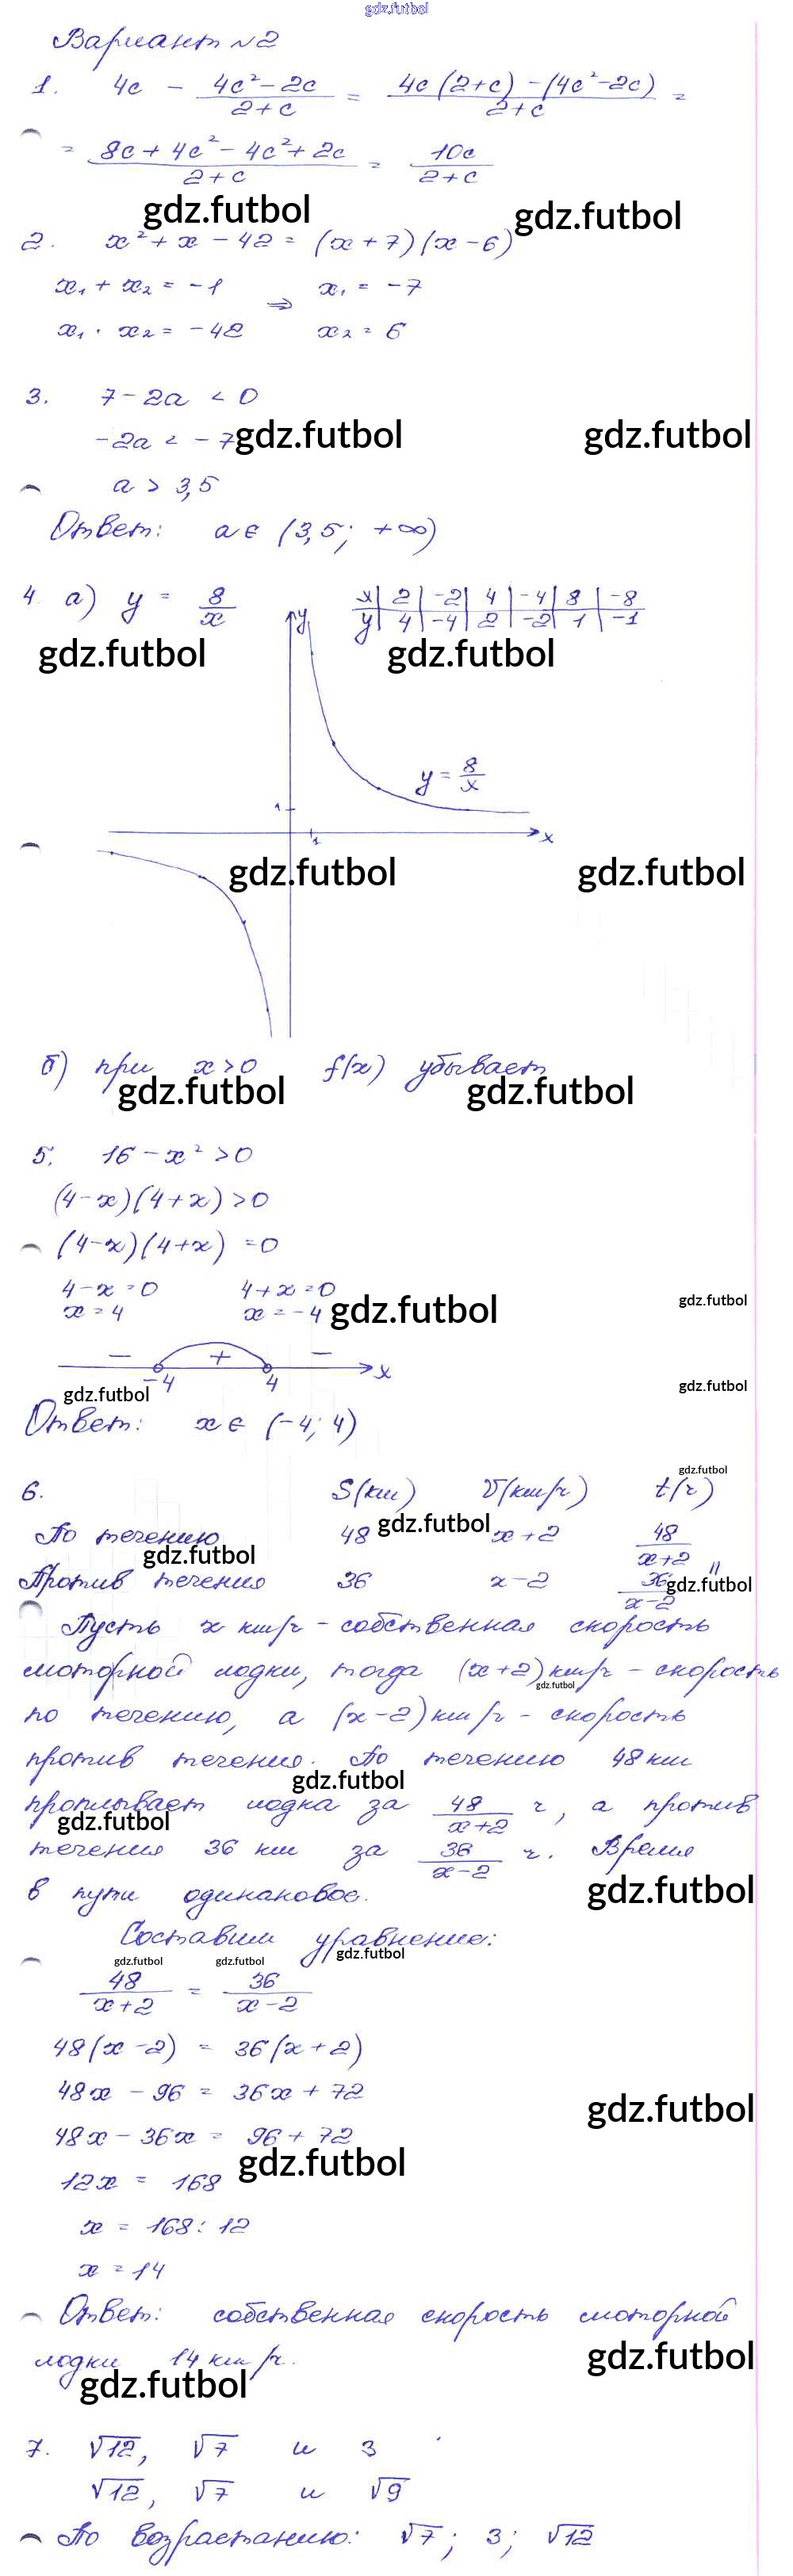 gdz.futbol
Вариант №2
1. 4c - (4c² - 2c)/(2+c) = (4c(2+c) - (4c² - 2c))/(2+c) =
= (8c + 4c² - 4c² + 2c)/(2+c) = 10c/(2+c)
gdz.futbol gdz.futbol
2. x² + x - 42 = (x+7)(x-6)
x₁ + x₂ = -1 ⇒ x₁ = -7
x₁ · x₂ = -42 x₂ = 6
3. 7 - 2a < 0
-2a < -7 gdz.futbol gdz.futbol
a > 3,5
Ответ: a ∈ (3,5; +∞)
4. а) y = 8/x
x | 2 | -2 | 4 | -4 | 8 | -8
y | 4 | -4 | 2 | -2 | 1 | -1
y
gdz.futbol gdz.futbol
y = 8/x
1
1 x
gdz.futbol gdz.futbol
б) при x > 0 f(x) убывает
gdz.futbol gdz.futbol
5. 16 - x² > 0
(4-x)(4+x) > 0
(4-x)(4+x) = 0
4 - x = 0 4 + x = 0
x = 4 x = -4 gdz.futbol gdz.futbol
− + −
-4 4 x
gdz.futbol gdz.futbol
Ответ: x ∈ (-4; 4)
gdz.futbol
6. S(км) V(км/ч) t(ч)
По течению 48 gdz.futbol x+2 48/(x+2)
gdz.futbol
Против течения 36 x-2 36/(x-2) =
gdz.futbol
Пусть x км/ч - собственная скорость
моторной лодки, тогда (x+2) км/ч - скорость
gdz.futbol
по течению, а (x-2) км/ч - скорость
против течения. По течению 48 км
gdz.futbol
проплывает лодка за 48/(x+2) ч, а против
gdz.futbol
течения 36 км за 36/(x-2) ч. Время
в пути одинаковое. gdz.futbol
Составим уравнение:
gdz.futbol gdz.futbol gdz.futbol
48/(x+2) = 36/(x-2)
48(x-2) = 36(x+2)
48x - 96 = 36x + 72
gdz.futbol
48x - 36x = 96 + 72
gdz.futbol
12x = 168
x = 168 : 12
x = 14
Ответ: собственная скорость моторной
лодки 14 км/ч. gdz.futbol
gdz.futbol
7. √12, √7 и 3
√12, √7 и √9
По возрастанию: √7; 3; √12